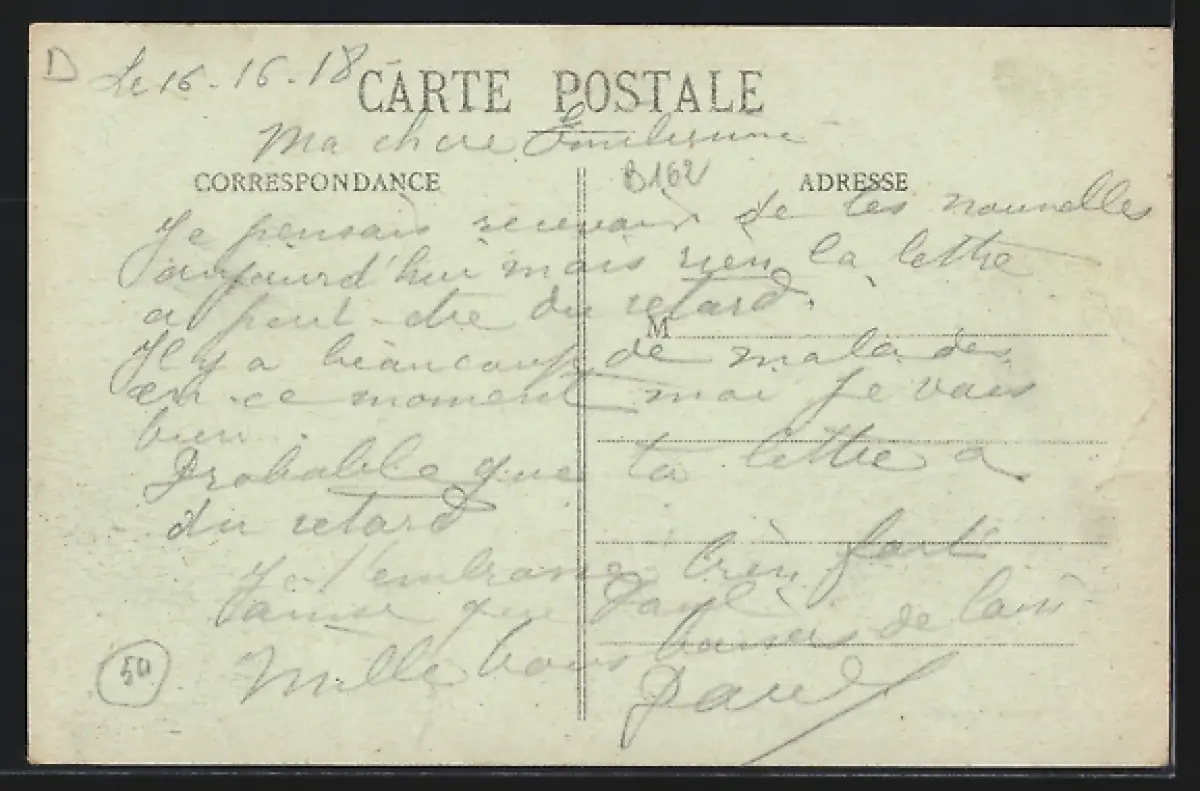 D
Le 16-16-18
CARTE POSTALE
Ma chere
CORRESPONDANCE
B162
ADRESSE
Je pensais recevoir de tes nouvelles
aujourd'hui mais rien la lettre
a peut-etre du retard.
M
Il y a beaucoup de malades
en ce moment moi je vais
bien.
Probable que ta lettre a
du retard
Je t'embrasse bien fort
que Paul
Mille bons baisers de loin
Paul
50